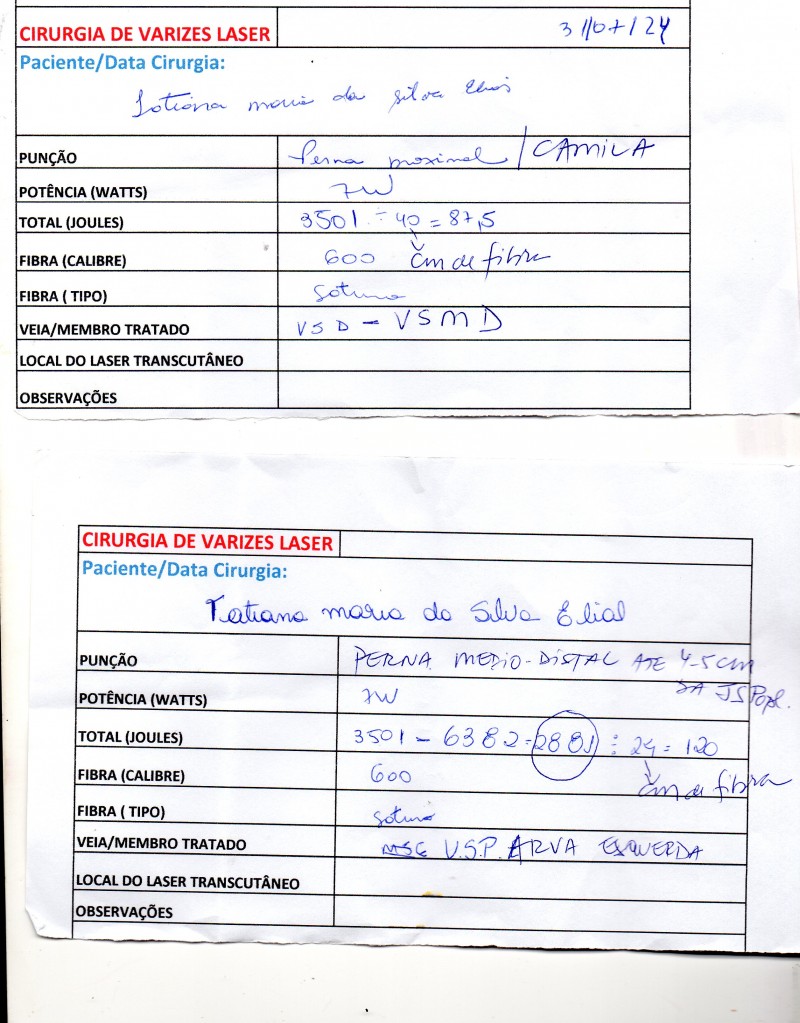 CIRURGIA DE VARIZES LASER 31/07/24
Paciente/Data Cirurgia:
Tatiana maria da silva Elias
PUNÇÃO Perna proximal / CAMILA
POTÊNCIA (WATTS) 7W
TOTAL (JOULES) 3501 ÷ 40 = 87,5
FIBRA (CALIBRE) 600 cm de fibra
FIBRA ( TIPO)
VEIA/MEMBRO TRATADO VSD - VSMD
LOCAL DO LASER TRANSCUTÂNEO
OBSERVAÇÕES
CIRURGIA DE VARIZES LASER
Paciente/Data Cirurgia:
Tatiana maria da Silva Elial
PUNÇÃO PERNA MEDIO-DISTAL ATE 4-5cm
DA JSPopl.
POTÊNCIA (WATTS) 7W
TOTAL (JOULES) 3501 - 6382 = 2881 ÷ 24 = 120
FIBRA (CALIBRE) 600 cm de fibra
FIBRA ( TIPO)
VEIA/MEMBRO TRATADO V.S.P. ESQUERDA
LOCAL DO LASER TRANSCUTÂNEO
OBSERVAÇÕES